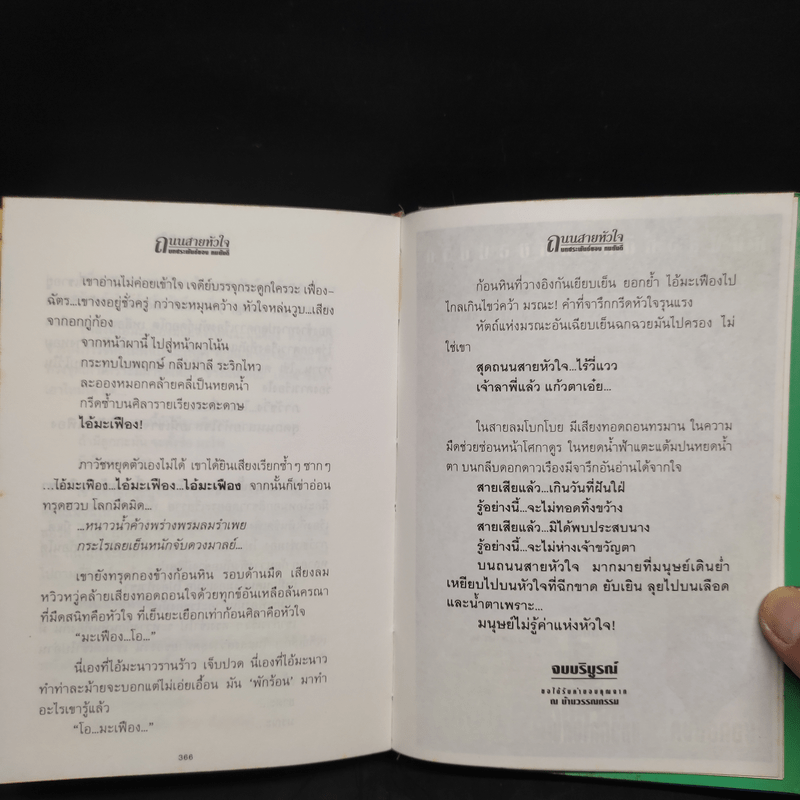 ถนนสายหัวใจ
บทประพันธ์ของ กมลันที
เขาอ่านไม่ค่อยเข้าใจ เจดีย์บรรจุกระดูกใครวะ เฟื่อง-
ฉัตร...เขางงอยู่ชั่วครู่ กว่าจะหมุนคว้าง หัวใจหล่นวูบ...เสียง
จากอกกู่ก้อง
จากหน้าผานี้ ไปสู่หน้าผาโน้น
กระทบใบพฤกษ์ กลีบมาลี ระริกไหว
ละอองหมอกคล้ายคลี่เป็นหยดน้ำ
กรีดซ้ำบนศิลารายเรียงระดะดาษ
ไอ้มะเฟือง!
ภาวัชหยุดตัวเองไม่ได้ เขาได้ยินเสียงเรียกซ้ำๆ ซากๆ
...ไอ้มะเฟือง...ไอ้มะเฟือง...ไอ้มะเฟือง จากนั้นก็เข่าอ่อน
ทรุดฮวบ โลกมืดมิด...
...หนาวน้ำค้างพร่างพรมลมรำเพย
กระไรเลยเย็นหนักจับดวงมาลย์...
เขายังทรุดกองข้างก้อนหิน รอบด้านมืด เสียงลม
หวิวหวู่คล้ายเสียงทอดถอนใจด้วยทุกข์อันเหลือล้นครณา
ที่มืดสนิทคือหัวใจ ที่เย็นยะเยือกเท่าก้อนศิลาคือหัวใจ
“มะเฟือง...โอ...”
นี่เองที่ไอ้มะนาวรานร้าว เจ็บปวด นี่เองที่ไอ้มะนาว
ทำท่าละม้ายจะบอกแต่ไม่เอ่ยเอื้อน มัน ‘พักร้อน’ มาทำ
อะไรเขารู้แล้ว
“โอ...มะเฟือง...”
366
ถนนสายหัวใจ
บทประพันธ์ของ กมลันที
ก้อนหินที่วางอิงกันเยียบเย็น ยอกย้ำ ไอ้มะเฟืองไป
ไกลเกินไขว่คว้า มรณะ! คำที่จารึกกรีดหัวใจรุนแรง
หัตถ์แห่งมรณะอันเฉียบเย็นฉกฉวยมันไปครอง ไม่
ใช่เขา
สุดถนนสายหัวใจ...ไร้วี่แวว
เจ้าลาพี่แล้ว แก้วตาเอ๋ย...
ในสายลมโบกโบย มีเสียงทอดถอนทรมาน ในความ
มืดช่วยซ่อนหน้าโศกาดูร ในหยดน้ำฟ้าแตะแต้มปนหยดน้ำ
ตา บนกลีบดอกดาวเรืองมีจารึกอันอ่านได้จากใจ
สายเสียแล้ว...เกินวันที่ฝันใฝ่
รู้อย่างนี้...จะไม่ทอดทิ้งขว้าง
สายเสียแล้ว...มิได้พบประสบนาง
รู้อย่างนี้...จะไม่ห่างเจ้าขวัญตา
บนถนนสายหัวใจ มากมายที่มนุษย์เดินย่ำ
เหยียบไปบนหัวใจที่ฉีกขาด ยับเยิน ลุยไปบนเลือด
และน้ำตาเพราะ...
มนุษย์ไม่รู้ค่าแห่งหัวใจ!
จบบริบูรณ์
ขอได้รับคำขอบคุณจาก
ณ บ้านวรรณกรรม